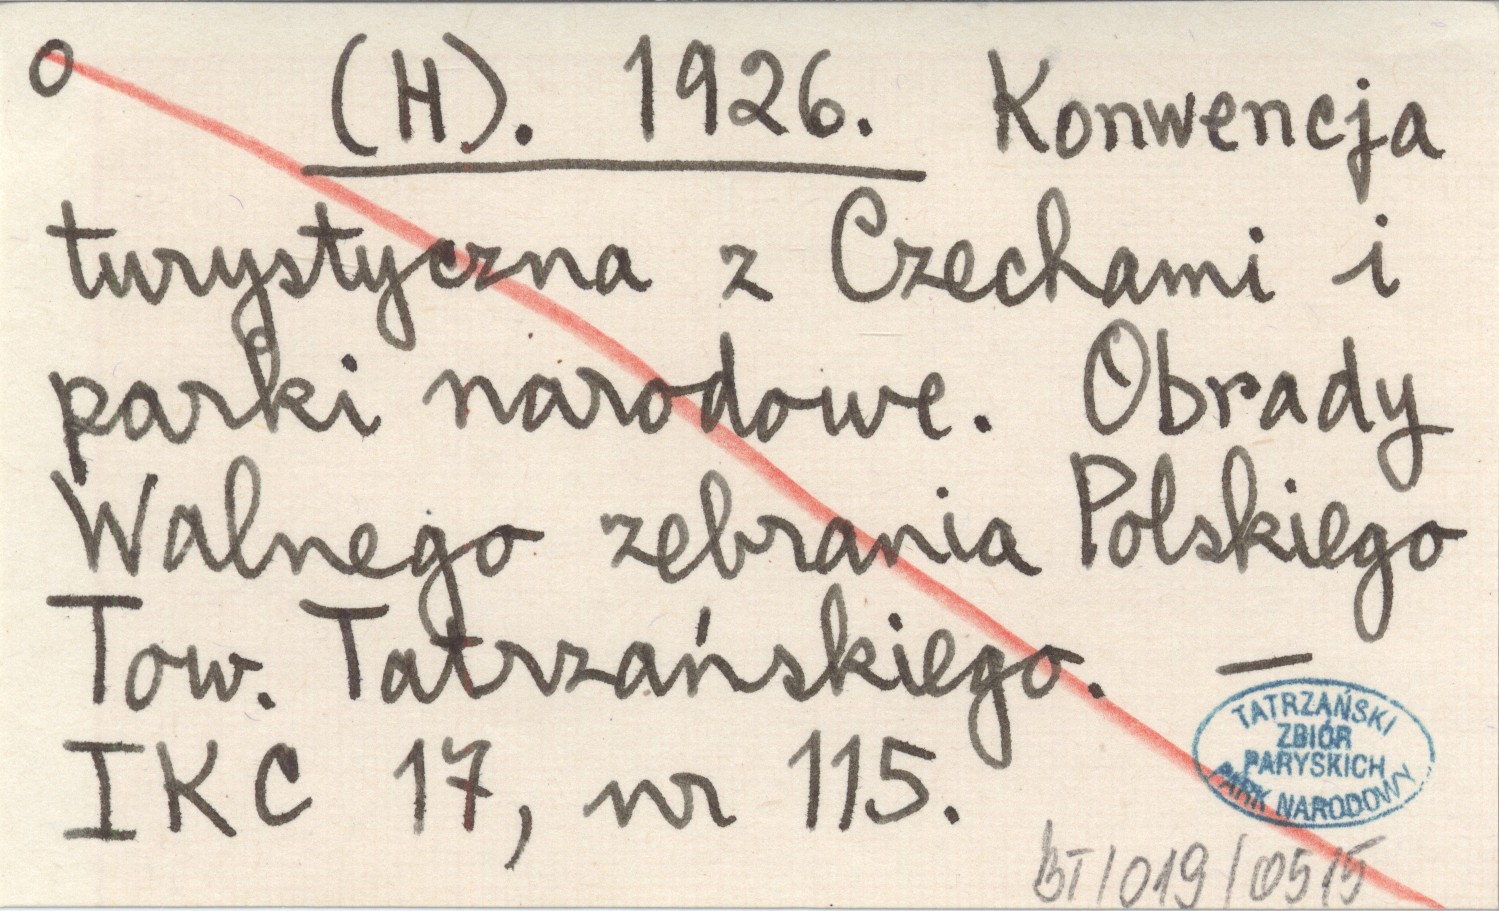 o (H). 1926. Konwencja
turystyczna z Czechami i
parki narodowe. Obrady
Walnego zebrania Polskiego
Tow. Tatrzańskiego. —
IKC 17, nr 115.
TATRZAŃSKI
ZBIÓR
PARYSKICH
PARK NARODOWY
BT/019/0515